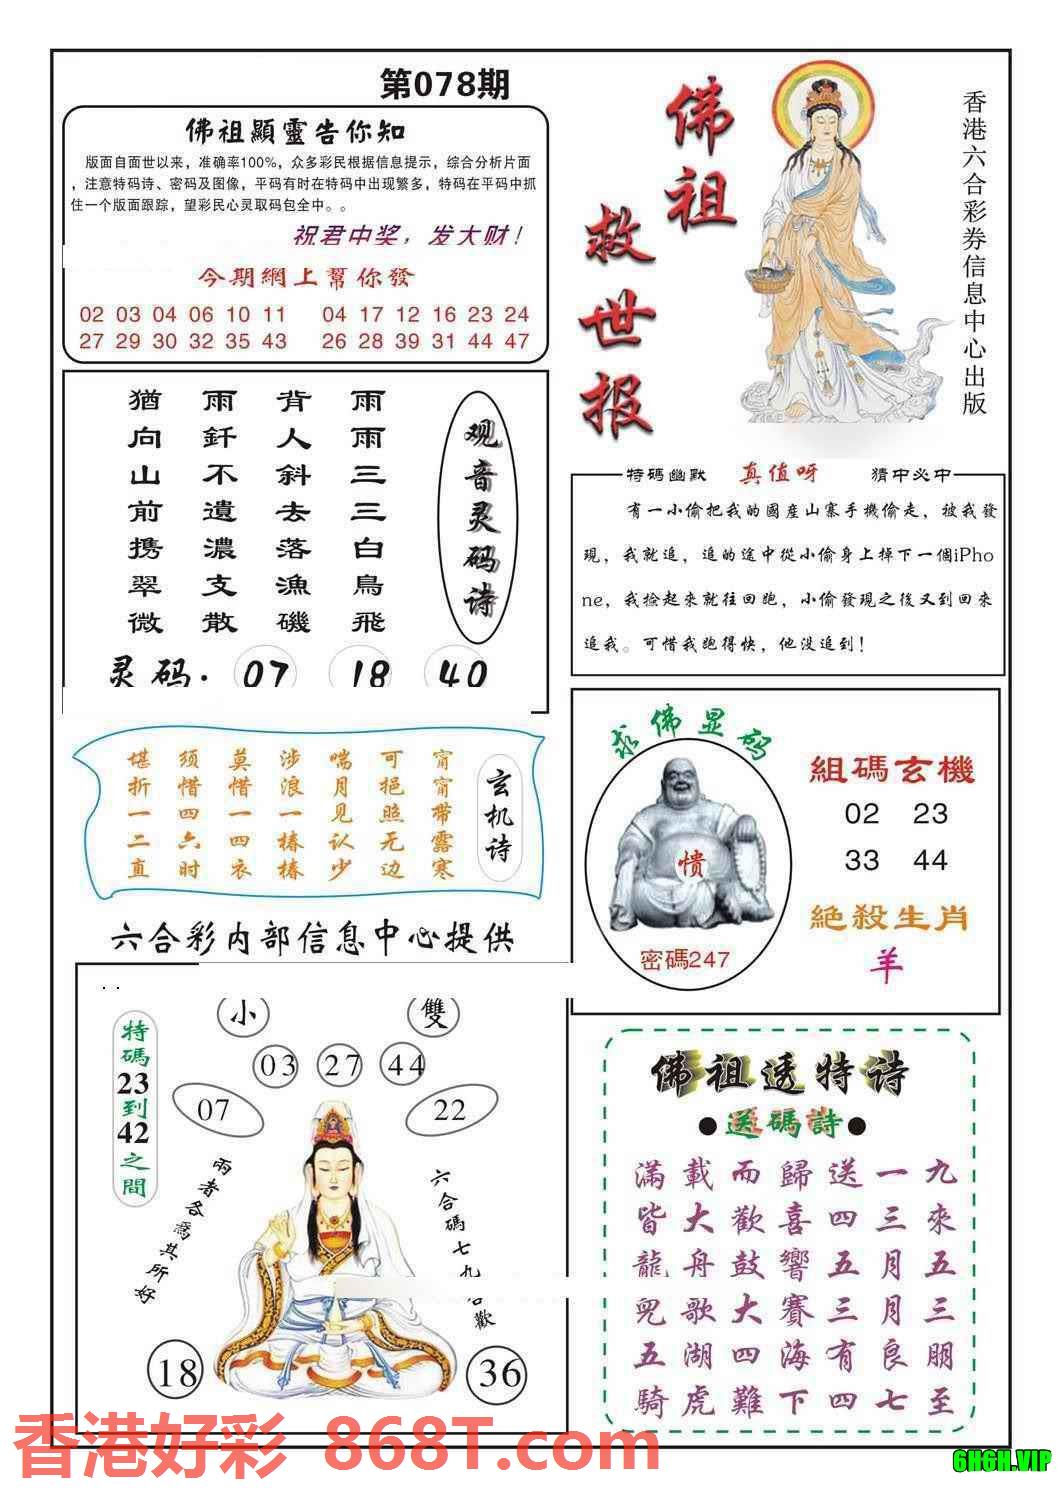 第078期
佛祖顯靈告你知
版面自面世以来，准确率100%，众多彩民根据信息提示，综合分析片面
，注意特码诗、密码及图像，平码有时在特码中出现繁多，特码在平码中抓
住一个版面跟踪，望彩民心灵取码包全中。。
祝君中奖，发大财！
今期網上幫你發
02 03 04 06 10 11 04 17 12 16 23 24
27 29 30 32 35 43 26 28 39 31 44 47
佛祖
救世报
香港六合彩券信息中心出版
观音灵码诗
雨雨三三白鳥飛
背人斜去落漁磯
雨釺不遺濃支散
猶向山前携翠微
灵码．07 18 40
特碼幽默 真值呀 猜中必中
有一小偷把我的國産山寨手機偷走，被我發
現，我就追，追的途中從小偷身上掉下一個iPho
ne，我捡起來就往回跑，小偷發現之後又到回來
追我。可惜我跑得快，他没追到！
玄机诗
甯甯带露寒
可挹照无边
喘月见认少
涉浪一椿椿
莫惜一四衣
须惜四六时
堪折一二直
求佛显码
愦
密碼247
組碼玄機
02 23
33 44
絕殺生肖
羊
六合彩内部信息中心提供
小 雙
03 27 44
07 22
特碼23到42之間
兩者各爲其所好
六合碼七九
歡
18 36
佛祖透特诗
●送碼詩●
滿載而歸送一九
皆大歡喜四三來
龍舟鼓響五月五
兜歌大賽三月三
五湖四海有良朋
騎虎難下四七至
香港好彩 868T.com
6H6H.VIP